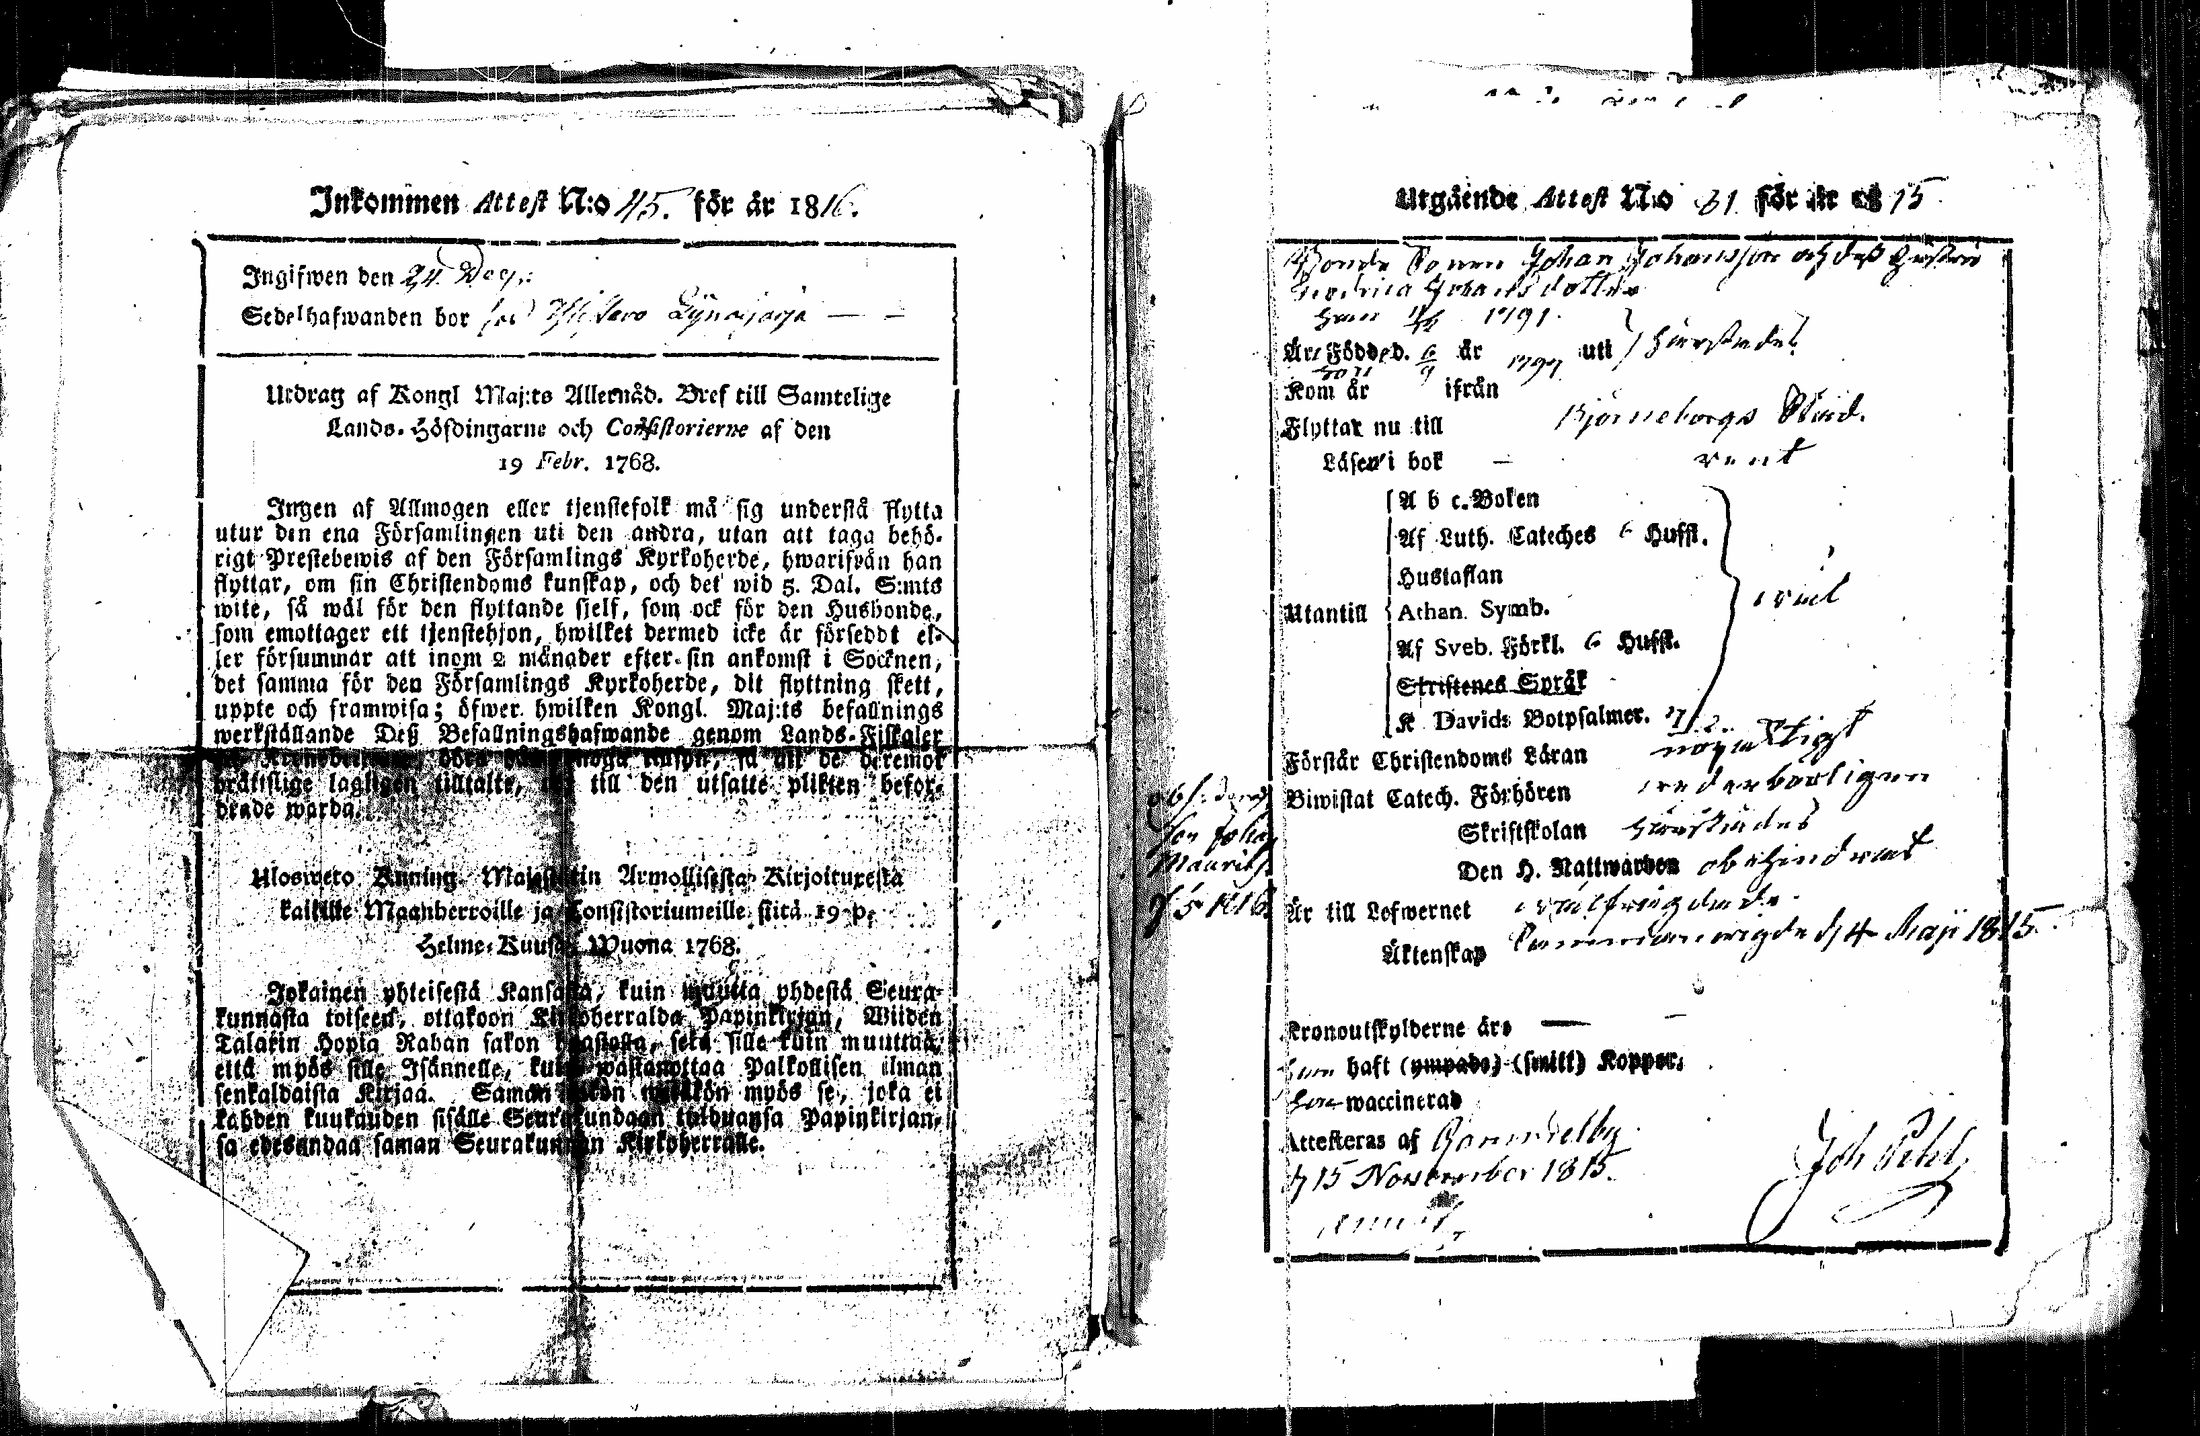 Inkommen Attest N:o 45. för år 1816.
Ingifwen den 24 Dec.:
Sedelhafwanden bor
Utdrag af Kongl Maj:ts Allernåd. Bref till Samtelige
Lands-Höfdingarne och Consistorierne af den
19 Febr. 1768.
Ingen af Allmogen eller tjenstefolk må sig understå flytta
utur den ena Församlingen uti den andra, utan att taga behö-
rigt Prestebewis af den Församlings Kyrkoherde, hwarifrån han
flyttar, om sin Christendoms kunskap, och det wid 5. Dal. S:mts
wite, så wäl för den flyttande sjelf, som ock för den Husbonde,
som emottager ett tjenstehjon, hwilket dermed icke är försedt el-
ler försummar att inom 2 månader efter sin ankomst i Socknen,
det samma för den Församlings Kyrkoherde, dit flyttning skett,
uppte och framwisa; öfwer hwilken Kongl. Maj:ts befallnings
werkställande Deß Befallningshafwande genom Lands-Fiskaler
brättslige lagligen tilltalte, till den utsatte plikten befor-
drade warda.
Ulosweto Kuning. Majestetin Armollisesta Kirjoituxesta
kaikille Maanherroille ja Consistoriumeille siitä 19 p.
Helme-Kuusa Wuona 1768.
Jokainen yhteisestä Kansasta, kuin muutta yhdestä Seura-
kunnasta toiseen, ottakoon Kirkoherralda Papinkirjan, Wiiden
Talarin Hopia Rahan sakon haastosta, sekä sille kuin muuttaa,
että myös sille Isännelle, kuin wastanottaa Palkollisen ilman
senkaldaista Kirjaa. Saman sakon myös se, joka ei
kahden kuukauden sisälle Seurakundaan tulduansa Papinkirjan-
sa edesandaa saman Seurakunnan Kirkoherralle.
Utgående Attest N:o 31. för år 1815
Bonde Sonen Johan Johansson och deß hustru
Fredrica Johansdotter
han 1791.
Äre Född d. 6/9 år 1797 uti härstädes
hon
Kom år ifrån
Flyttar nu till Björneborgs Stad.
Läser i bok — rent
A b c. Boken
Af Luth. Cateches 6 Hufst.
Hustaflan
Utantill Athan. Symb. wäl
Af Sveb. Förkl. 6 Hufst.
Skriftenes Språk
K Davids Botpsalmer.
Förstår Christendoms Läran nöjaktigt
Biwistat Catech. Förhören wederbörligen
Skriftskolan härstädes
Den H. Nattwarden obehindrat
Är till Lefwernet wälfrägdade.
Äktenskap Sammanwigde d 4 Maji 1815.
Son Johan
Mauritz
f 5 1816
Kronoutskylderne äro —
han haft (ympade) (smitt) Koppor;
hon waccinerad
Attesteras af Gammelby
d 15 November 1815.
Joh Pehl